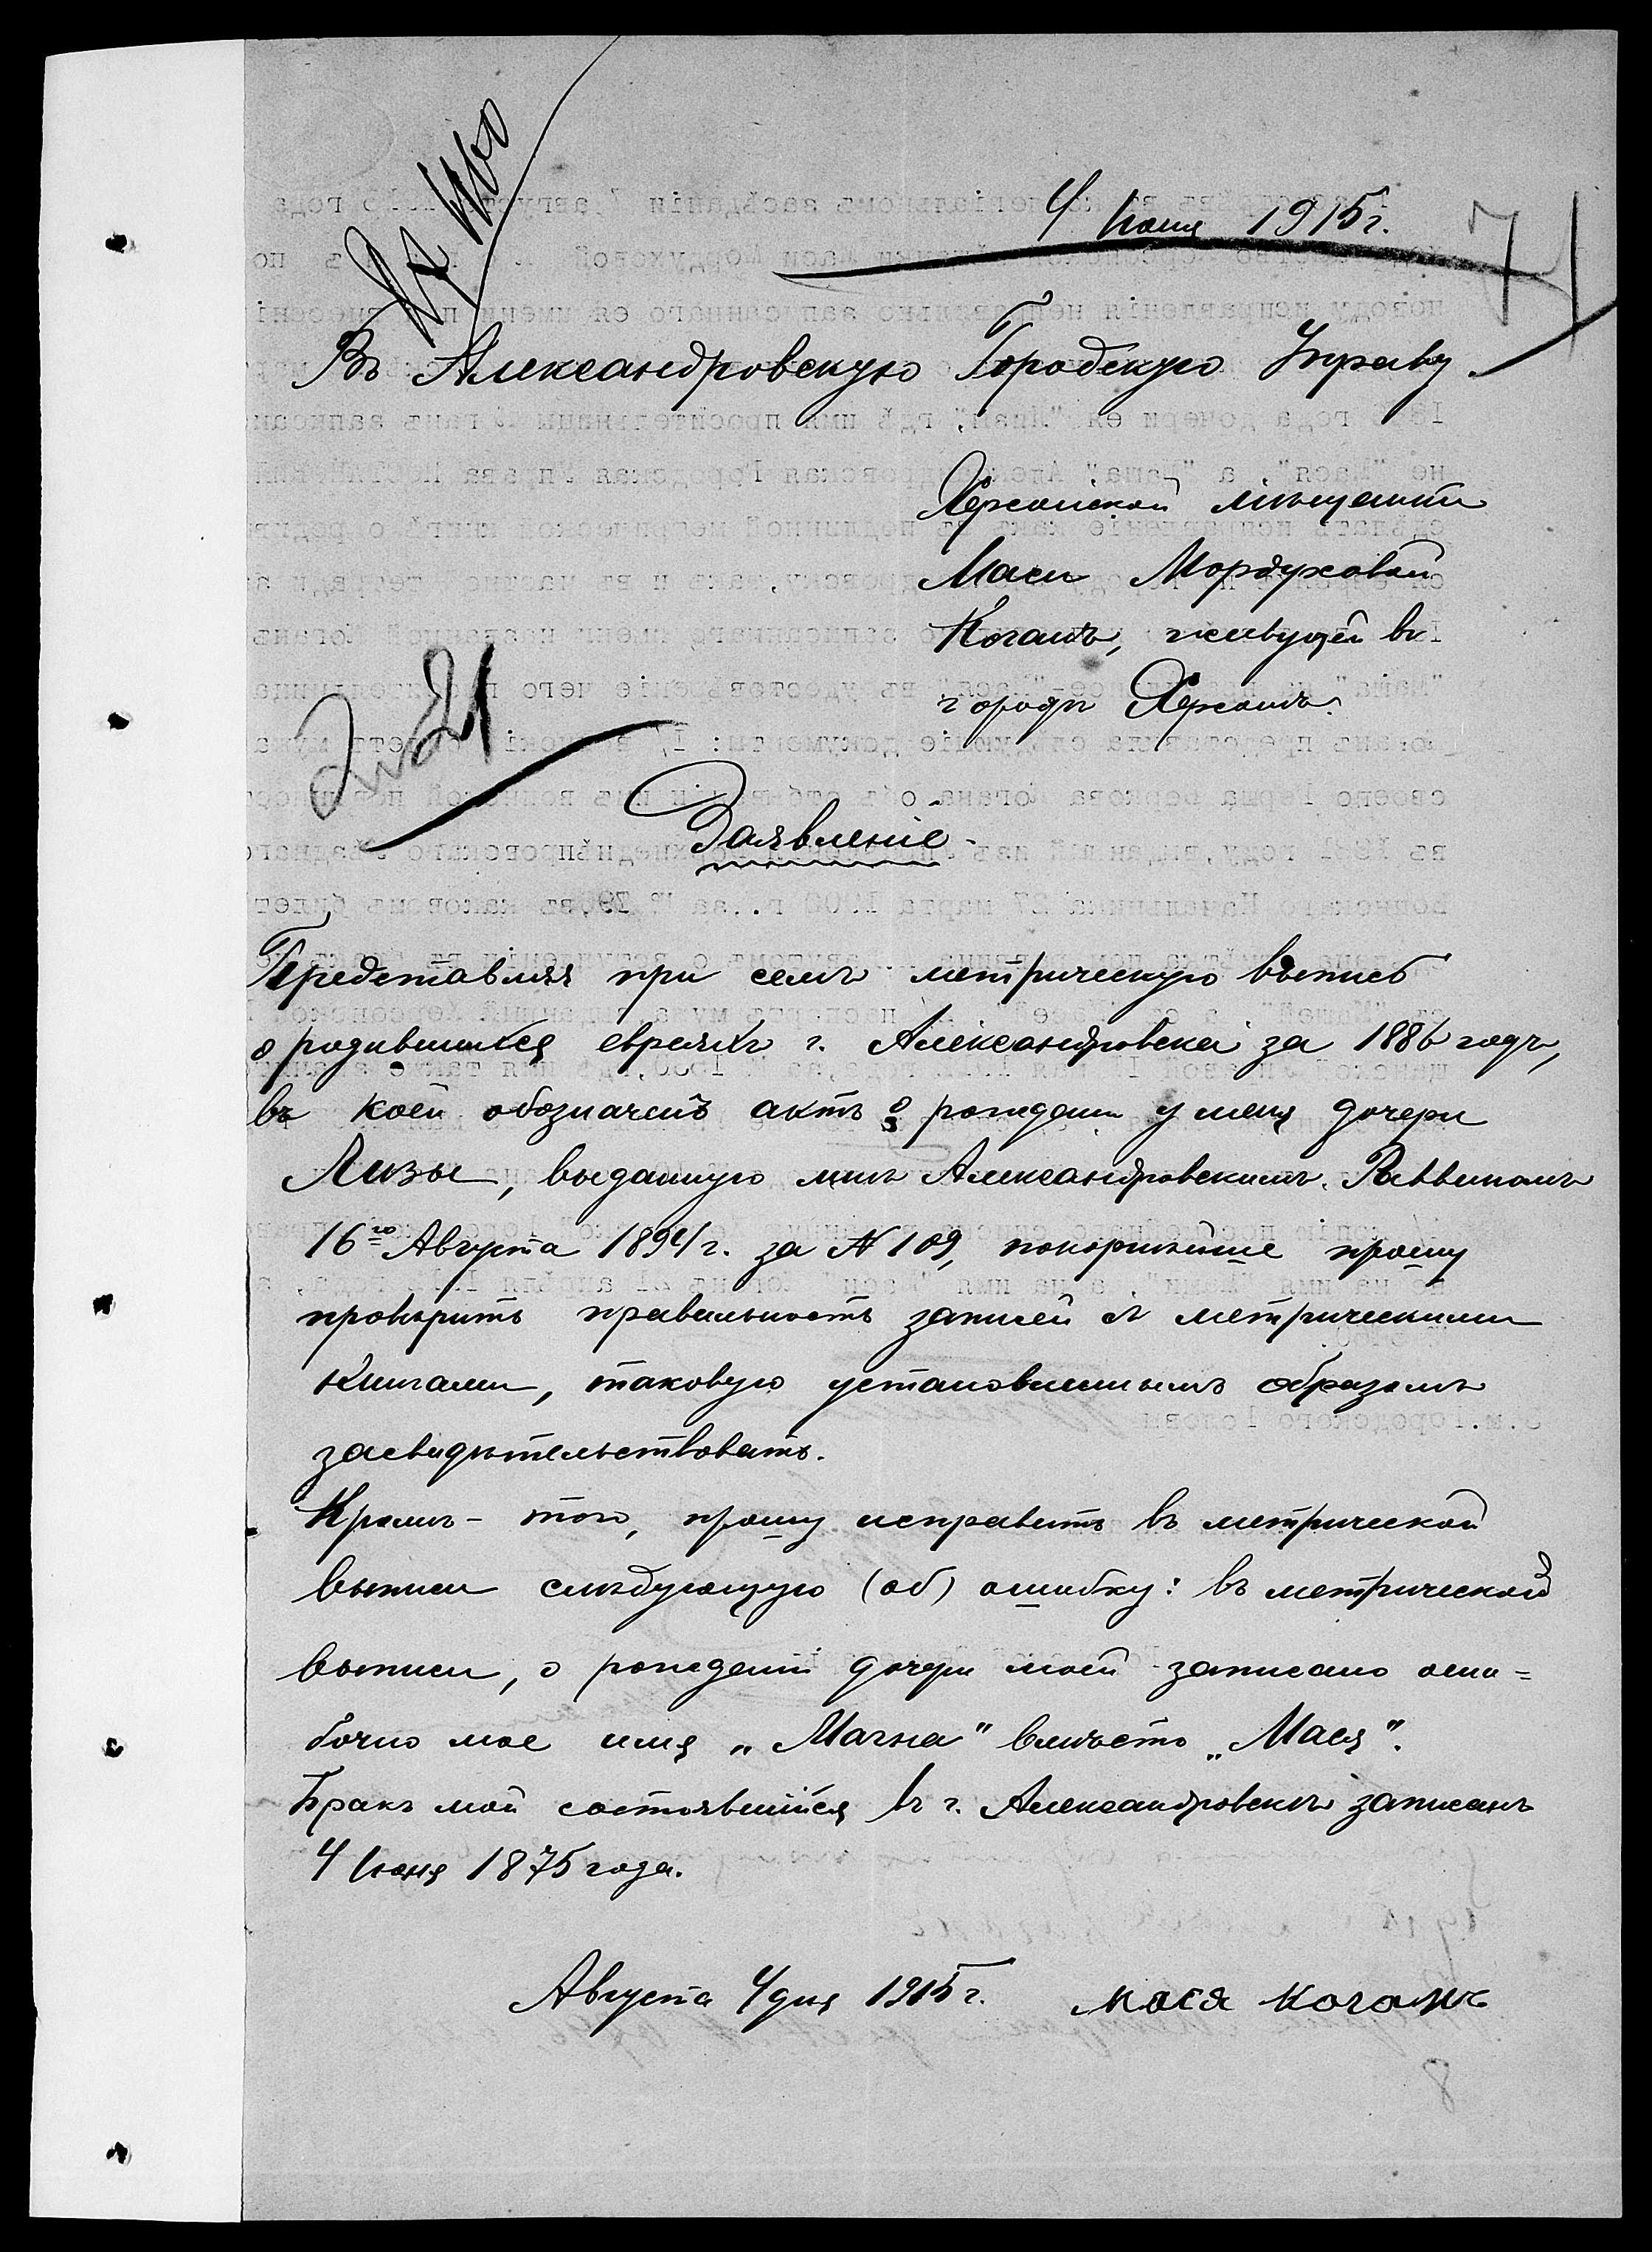 4 Іюня 1915 г.
74
Въ Александровскую Городскую Управу.
Херсонской мѣщанки
Маси Мордуховой
Коганъ, живущей въ
городѣ Херсонѣ.
Заявленіе
Представляя при семъ метрическую выпись
о родившихся евреяхъ г. Александровска за 1886 годъ,
въ коей обозначенъ актъ о рожденіи у меня дочери
Лизы, выданную мнѣ Александровскимъ Раввиномъ
16го Августа 1894 г. за N 109, покорнѣйше прошу
провѣрить правильность записей съ метрическими
книгами, таковую установленнымъ образомъ
засвидѣтельствовать.
Кромѣ- того, прошу исправить въ метрической
выписи слѣдующую (об) ошибку: въ метрической
выписи, о рожденіи дочери моей записано оши=
бочно мое имя „Магна" вмѣсто „Мася".
Бракъ мой состоявшійся въ г. Александровскѣ записанъ
4 Іюня 1875 года.
Августа 4 дня 1915 г. Мася Коганъ